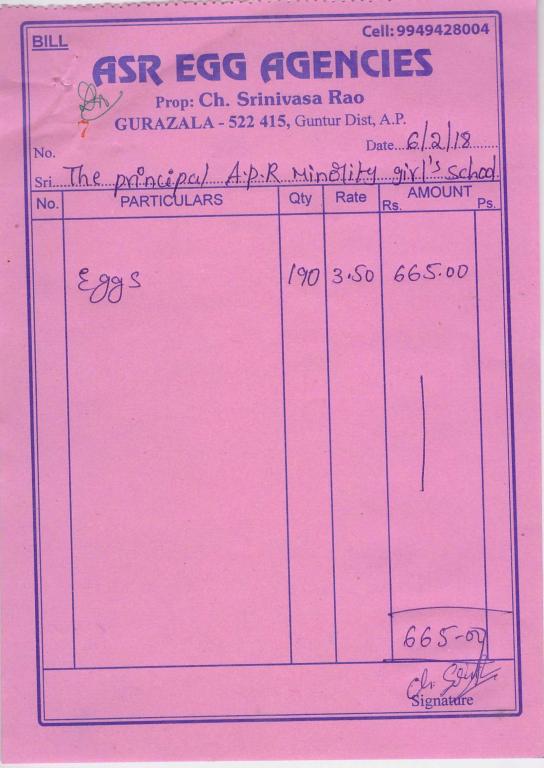 BILL
Cell: 9949428004
ASR EGG AGENCIES
Prop: Ch. Srinivasa Rao
GURAZALA - 522 415, Guntur Dist, A.P.
7
No.
Date 6/2/18
Sri The principal A.P.R Minority girl's School
No. PARTICULARS Qty Rate AMOUNT
Rs. Ps.
Eggs 190 3.50 665.00
665-00
Signature